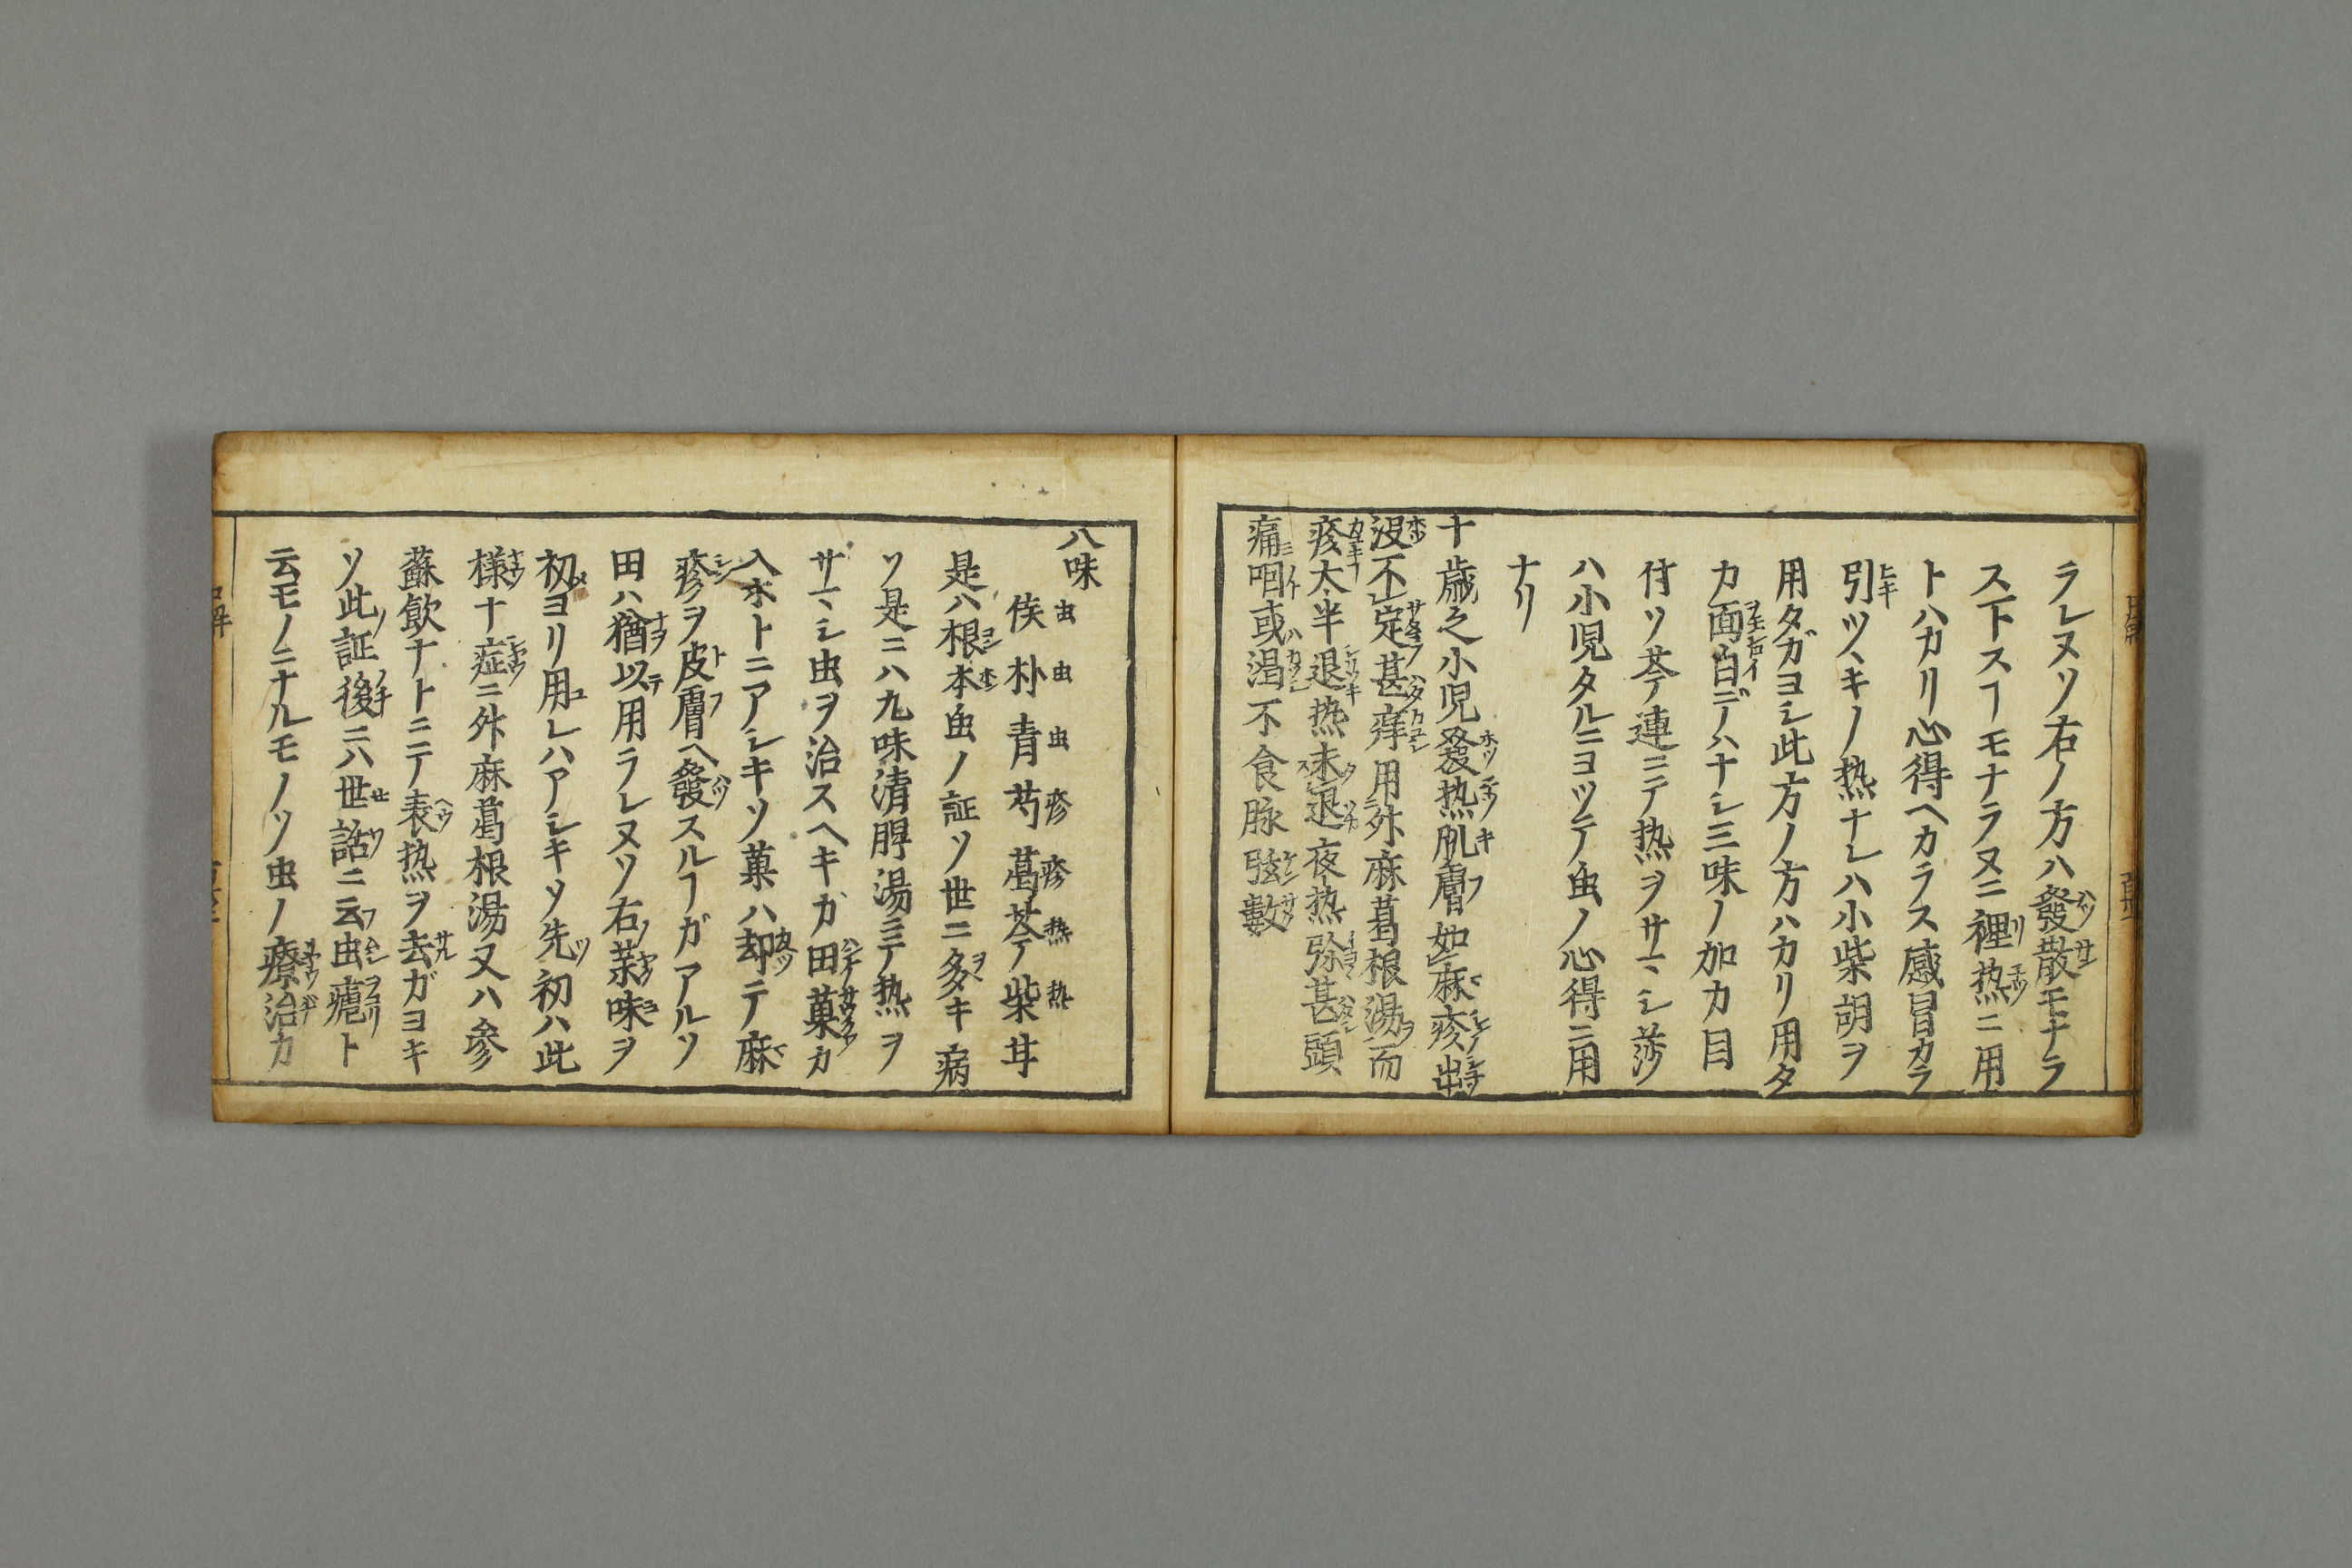 ラレヌソ右ノ方ハ發散モナラ
ス下スヿモナラヌニ裡热ニ用
トハカリ心得ヘカラス感冒カラ
引ツヽキノ热ナレハ小柴胡ヲ
用タガヨシ此方ノ方ハカリ用タ
カ面白デハナシ三味ノ加カ目
付ソ芩連ニテ热ヲサマシ莎
ハ小児タルニヨツテ虫ノ心得ニ用
ナリ
十歳之小児發热肌膚如麻疹出
没不定甚痒用升麻葛根湯而
疹太半退热未退夜热弥甚頭
痛咽或渇不食脉弦數
八味
俟朴青芍葛芩柴甘
虫虫虫疹疹热热
是ハ根本虫ノ証ソ世ニ多キ病
ソ是ニハ九味清脾湯ニテ热ヲ
サマシ虫ヲ治スヘキガ田菓カ
入ホトニアシキソ菓ハ却テ麻
疹ヲ皮膚ヘ發スルヿガアルソ
田ハ猶以用ラレヌソ右藥味ヲ
初ヨリ用レハアシキソ先初ハ此
様ナ症ニ升麻葛根湯又ハ参
蘇飲ナトニテ表热ヲ去ガヨキ
ソ此証後ニハ世話ニ云虫瘧ト
云モノニナルモノソ虫ノ療治カ